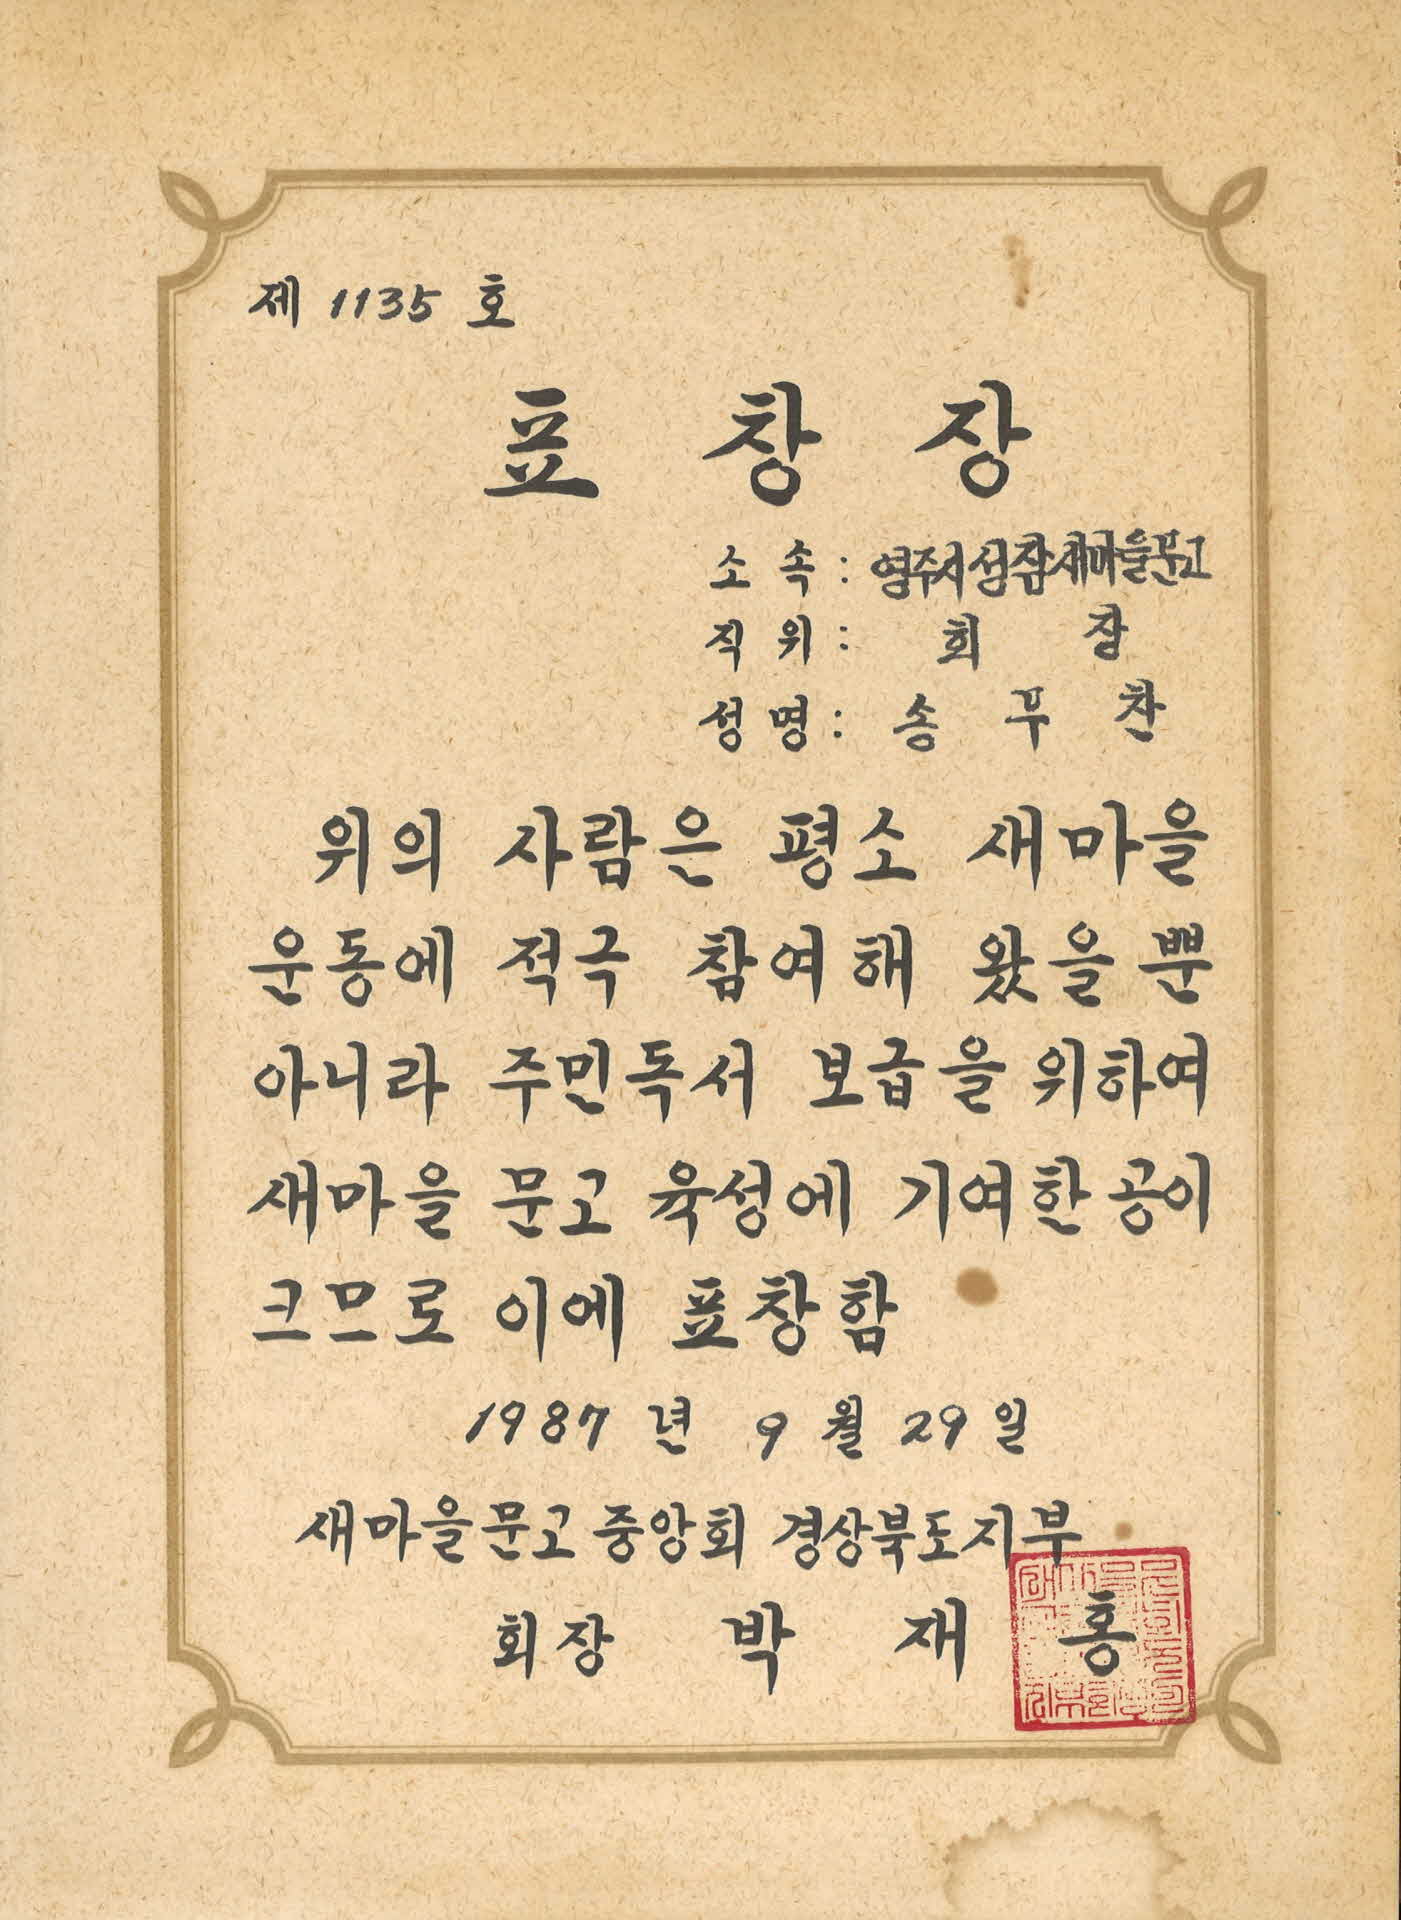 제 1135 호
표 창 장
소 속 : 영주시 성잠새마을문고
직 위 : 회 장
성 명 : 송 무 찬
위의 사람은 평소 새마을
운동에 적극 참여해 왔을 뿐
아니라 주민독서 보급을 위하여
새마을 문고 육성에 기여한 공이
크므로 이에 표창함
1987 년 9 월 29 일
새마을문고 중앙회 경상북도지부
회장 박 재 홍